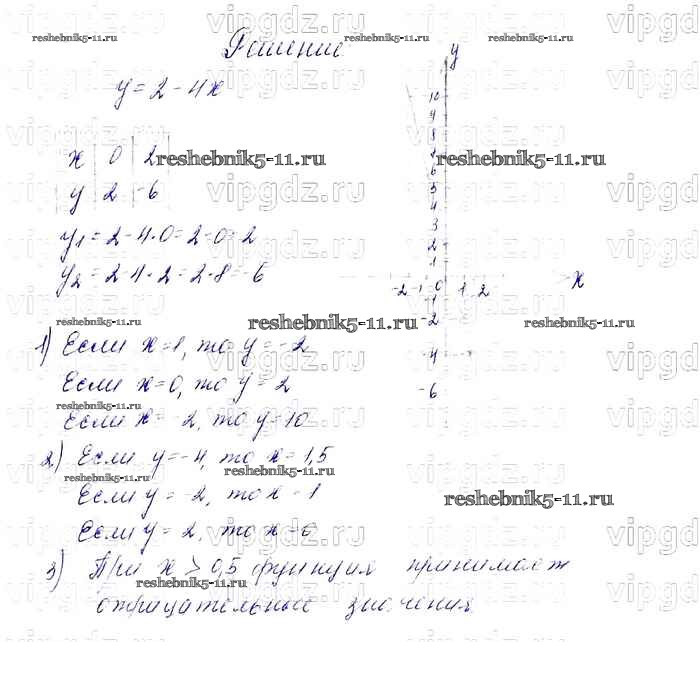 Решение
y = 2 - 4x
x 0 2
y 2 -6
y₁ = 2 - 4·0 = 2 - 0 = 2
y₂ = 2 - 4·2 = 2 - 8 = -6
1) Если x=1, то y = -2
Если x=0, то y = 2
Если x= -2, то y=10
2) Если y=-4, то x=1,5
Если y = -2, то x = 1
Если y = 2, то x = 0
3) При x > 0,5 функция принимает
отрицательные значения
y
10
9
8
7
6
5
4
3
2
1
-2 -1 0 1 2 x
-1
-2
-4
-6
reshebnik5-11.ru
vipgdz.ru